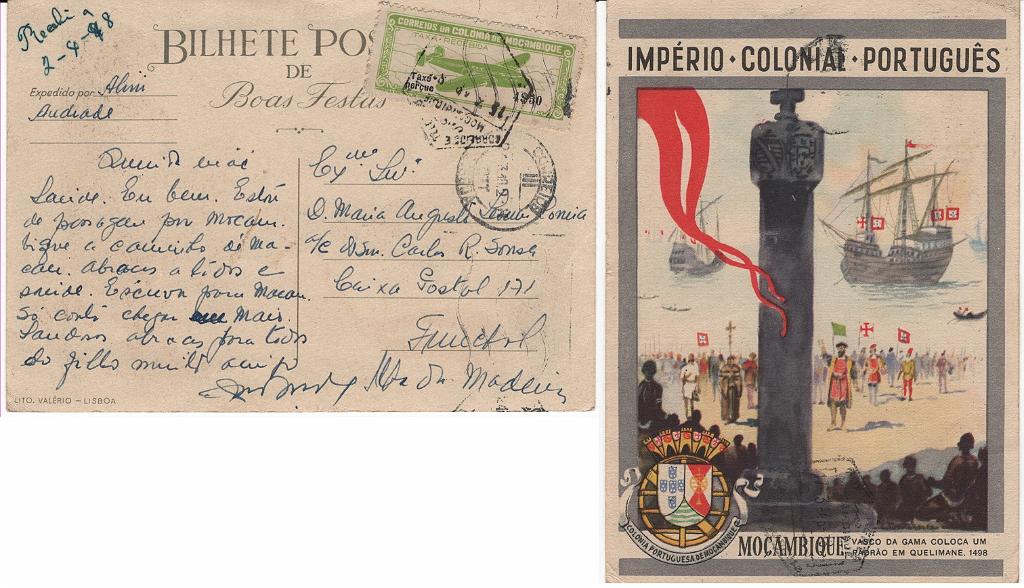 2-4-48
BILHETE POS
DE
Boas Festas
Expedido por Alvini
Andrade
CORREIOS DA COLONIA DE MOÇAMBIQUE
TAXA RECEBIDA
Taxe perçue
1$50
Querida mãe
Saúde. Eu bem. Estou
de passagem por Moçam-
bique a caminho de Ma-
cau. Abraços a todos e
saúde. Escreva para Macau.
Só conto chegar em Maio.
Saudosos abraços para todos
do filho muito amigo
Exma Sra
D. Maria Augusta
A/c do Sr. Carlos R. Sousa
Caixa Postal 171
Funchal
Ilha da Madeira
LITO. VALÉRIO - LISBOA
IMPÉRIO · COLONIAL · PORTUGUÊS
COLONIA PORTUGUESA DE MOÇAMBIQUE
MOÇAMBIQUE
VASCO DA GAMA COLOCA UM
PADRÃO EM QUELIMANE. 1498